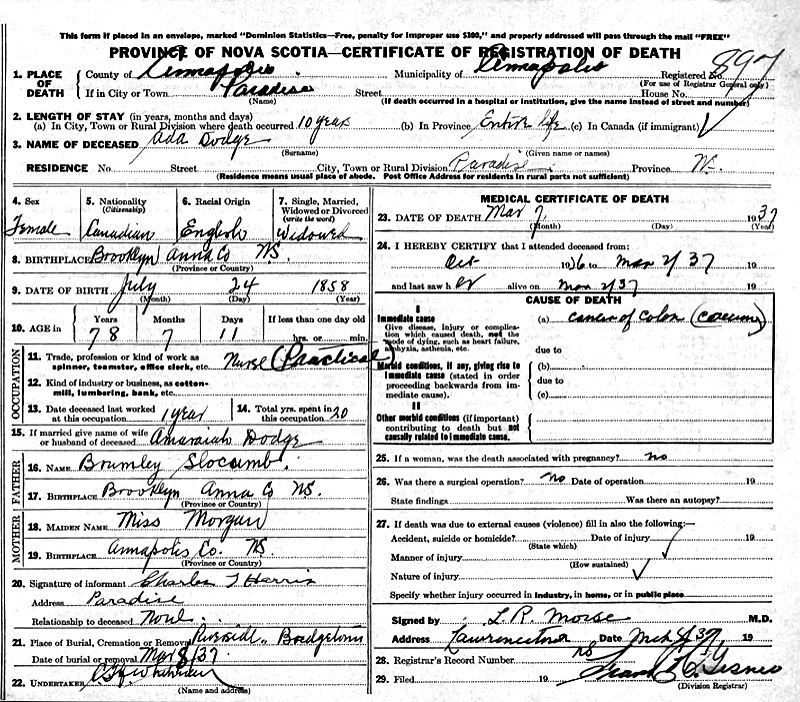 This form if placed in an envelope, marked "Dominion Statistics—Free, penalty for improper use $300," and properly addressed will pass through the mail "FREE"
PROVINCE OF NOVA SCOTIA—CERTIFICATE OF REGISTRATION OF DEATH
1. PLACE OF DEATH County of Annapolis Municipality of Annapolis Registered No. 897
(For use of Registrar General only)
If in City or Town Paradise Street House No.
(Name) (If death occurred in a hospital or institution, give the name instead of street and number)
2. LENGTH OF STAY (in years, months and days)
(a) In City, Town or Rural Division where death occurred 10 years (b) In Province Entire life (c) In Canada (if immigrant)
3. NAME OF DECEASED Ada Dodge
(Surname) (Given name or names)
RESIDENCE No. Street City, Town or Rural Division Paradise Province
(Residence means usual place of abode. Post Office Address for residents in rural parts not sufficient)
4. Sex Female
5. Nationality (Citizenship) Canadian
6. Racial Origin English
7. Single, Married, Widowed or Divorced (write the word) Widowed
8. BIRTHPLACE Brooklyn Anna Co N.S.
(Province or Country)
9. DATE OF BIRTH July 24 1858
(Month) (Day) (Year)
10. AGE in Years Months Days If less than one day old
78 7 11 hrs. or min.
OCCUPATION
11. Trade, profession or kind of work as spinner, teamster, office clerk, etc. Nurse (Practical)
12. Kind of industry or business, as cotton-mill, lumbering, bank, etc.
13. Date deceased last worked at this occupation 1 year
14. Total yrs. spent in this occupation 20
15. If married give name of wife or husband of deceased Amaraiah Dodge
FATHER
16. NAME Brumley Slocumb
17. BIRTHPLACE Brooklyn Anna Co NS.
(Province or Country)
MOTHER
18. MAIDEN NAME Miss Morgan
19. BIRTHPLACE Annapolis Co. NS.
(Province or Country)
20. Signature of informant Charles T Harris
Address Paradise
Relationship to deceased None
21. Place of Burial, Cremation or Removal Riverside, Bridgetown
Date of burial or removal Mar 8/37
22. UNDERTAKER
(Name and address)
MEDICAL CERTIFICATE OF DEATH
23. DATE OF DEATH Mar 7 1937
(Month) (Day) (Year)
24. I HEREBY CERTIFY that I attended deceased from:
Oct 1936 to Mar 2/37 19
and last saw her alive on Mar 2/37 19
CAUSE OF DEATH
I
Immediate cause
Give disease, injury or complication which caused death, not the mode of dying, such as heart failure, asphyxia, asthenia, etc.
(a) cancer of colon (caecum)
due to
Morbid conditions, if any, giving rise to immediate cause (stated in order proceeding backwards from immediate cause).
(b)
due to
(c)
II
Other morbid conditions (if important) contributing to death but not causally related to immediate cause.
25. If a woman, was the death associated with pregnancy? no
26. Was there a surgical operation? no Date of operation 19
State findings Was there an autopsy?
27. If death was due to external causes (violence) fill in also the following:—
Accident, suicide or homicide? Date of injury 19
(State which)
Manner of injury
(How sustained)
Nature of injury
Specify whether injury occurred in industry, in home, or in public place
Signed by L R Morse M.D.
Address Lawrencetown Date Mch 8/37 19
28. Registrar's Record Number 78
29. Filed 19
(Division Registrar)